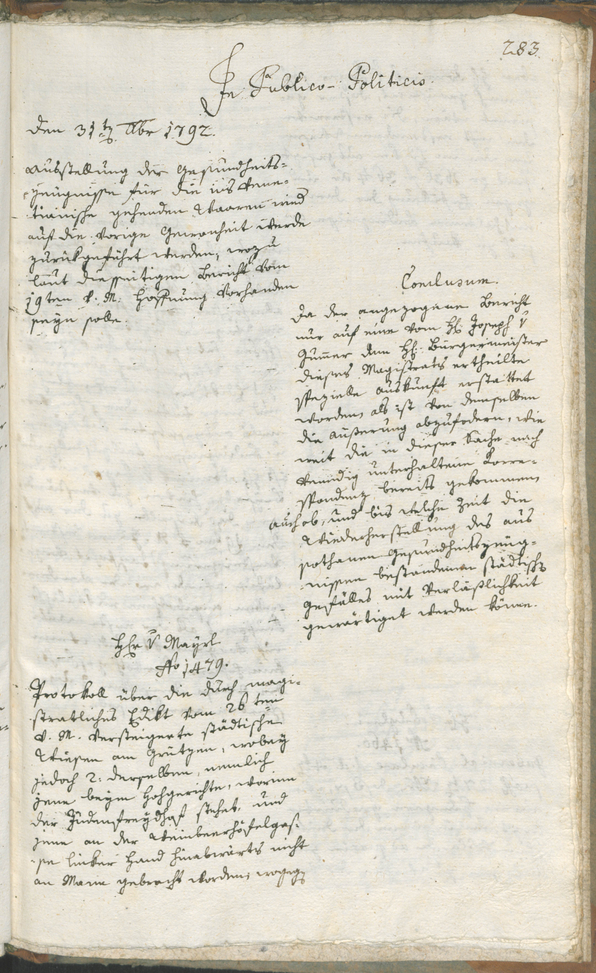 283.
In Publico-Politicis.
Den 31ten 8br 1792.
Ausstellung der Gesundheits-
zeugnisse für die ins Vene-
tianische gehenden Waaren wird
auf die vorige Gewohnheit werde
zurückgeführt werden, wozu
laut diesseitigen Bericht vom
19ten v. M. Hoffnung vorhanden
seyn solle.
Conclusum.
Da der angezogene Bericht
nur auf eine vom H: Joseph v
Gumer dem H: Bürgermeister
dieses Magistrats ertheilte
spezielle Auskunft erstattet
worden, als ist von demselben
die Äußerung abzufodern, wie
weit die in dieser Sache nach
Venedig unterhaltene Korre-
spondenz bereits gekommen,
auch ob, und bis welche Zeit die
Wiederherstellung des aus
sothanen Gesundheitszeug-
nissen bestandenen städtisch
Gefälles mit Verläßlichkeit
gewärtiget werden könne.
Hr v Mayrl
No 1479.
Protokoll über die durch magi-
stratliches Edikt vom 26ten
v. M. versteigerte städtische
Wiesen am Grützen, wobey
jedoch 2. derselben, nemlich
jene beym Hochgerichte, worinn
der Judenfreydhof stehet, und
jene an der Weinbeerhöfelgas-
se linker Hand hineinwärts nicht
an Mann gebracht worden,